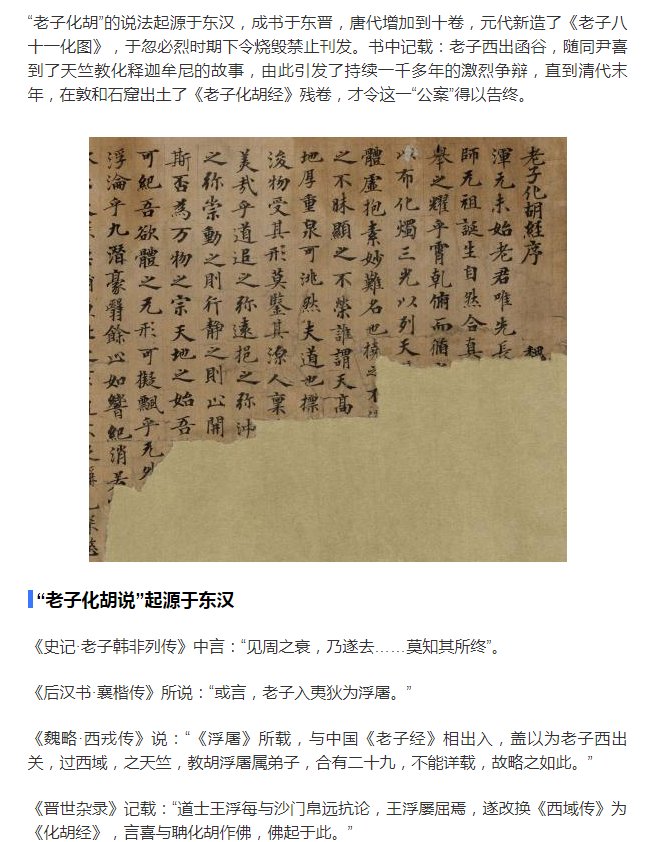 “老子化胡”的说法起源于东汉，成书于东晋，唐代增加到十卷，元代新造了《老子八
十一化图》，于忽必烈时期下令烧毁禁止刊发。书中记载：老子西出函谷，随同尹喜
到了天竺教化释迦牟尼的故事，由此引发了持续一千多年的激烈争辩，直到清代末
年，在敦和石窟出土了《老子化胡经》残卷，才令这一“公案”得以告终。
老子化胡經序 魏
渾元未始老君唯先長
師元祖誕生自然合真
舉之耀乎霄乾俯而循
以布化燭三光以列天
體虛抱素妙難名也
之不昧顯之不榮誰謂天高
地厚重泉可洮然夫道也摽
浚物受其形莫鑒其潦人稟
美哉乎道追之弥遠挹之弥沖
之弥崇動之則行靜之則止開
斯否為万物之宗天地之始吾
可紀吾欲體之无形可擬飄乎无外
浮淪乎九潛豪翳餘以如響紀消
“老子化胡说”起源于东汉
《史记·老子韩非列传》中言：“见周之衰，乃遂去……莫知其所终”。
《后汉书·襄楷传》所说：“或言，老子入夷狄为浮屠。”
《魏略·西戎传》说：“《浮屠》所载，与中国《老子经》相出入，盖以为老子西出
关，过西域，之天竺，教胡浮屠属弟子，合有二十九，不能详载，故略之如此。”
《晋世杂录》记载：“道士王浮每与沙门帛远抗论，王浮屡屈焉，遂改换《西域传》为
《化胡经》，言喜与聃化胡作佛，佛起于此。”